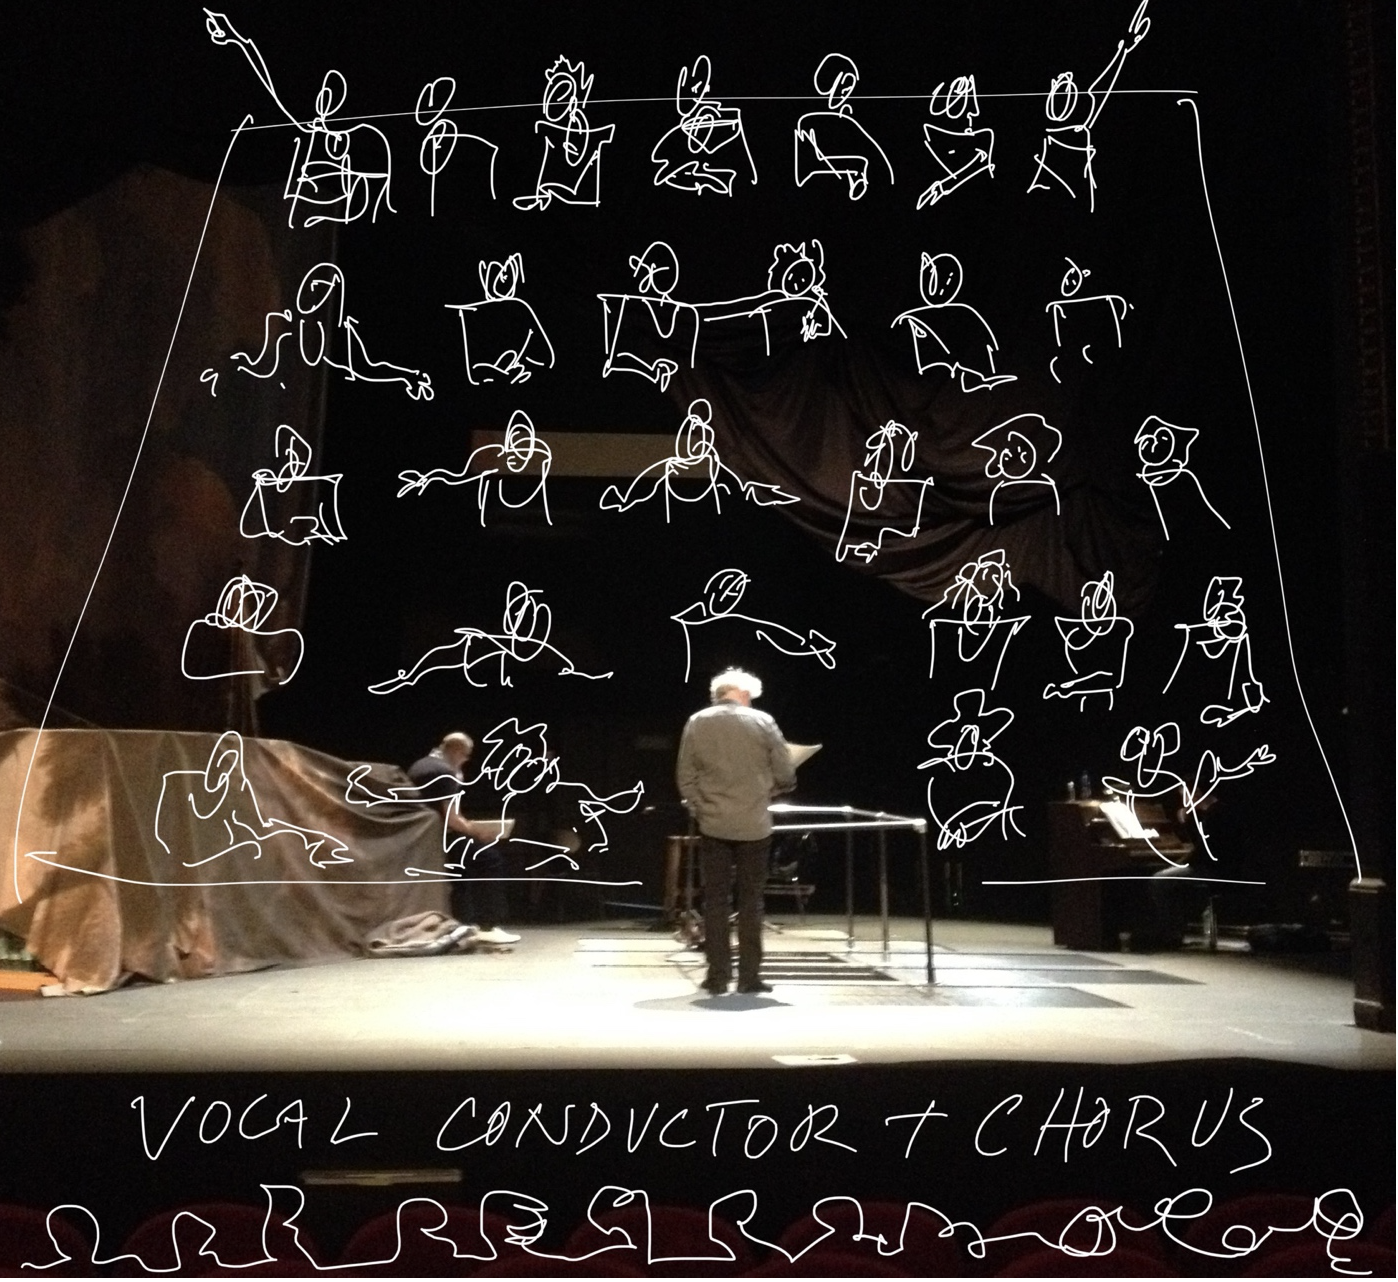 VOCAL CONDUCTOR + CHORUS